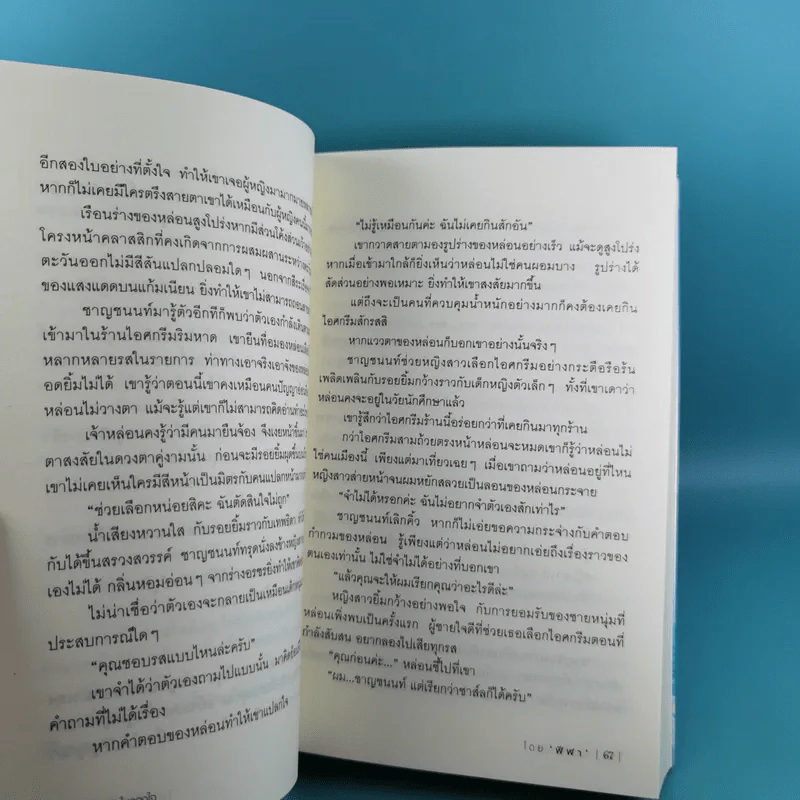 อีกสองใบอย่างที่ตั้งใจ ทำให้เขาเจอผู้หญิงมามากมาย
หากก็ไม่เคยมีใครตรึงสายตาเขาได้เหมือนกับผู้หญิงคนนี้
เรือนร่างของหล่อนสูงโปร่งหากมีส่วนโค้งส่วนเว้า
โครงหน้าคลาสสิกที่คงเกิดจากการผสมผสานระหว่าง
ตะวันออกไม่มีสีสันแปลกปลอมใดๆ นอกจากสี
ของแสงแดดบนแก้มเนียน ยิ่งทำให้เขาไม่สามารถถอน
ชาญชนนท์มารู้ตัวอีกทีก็พบว่าตัวเองกำลังเดิน
เข้ามาในร้านไอศกรีมริมหาด เขายืนที่อมองหล่อน
หลากหลายรสในรายการ ท่าทางเอาจริงเอาจังของ
อดยิ้มไม่ได้ เขารู้ว่าตอนนี้เขาคงเหมือนคนปัญญาอ่อน
หล่อนไม่วางตา แม้จะรู้แต่เขาก็ไม่สามารถคิดอ่านทำ
เจ้าหล่อนคงรู้ว่ามีคนมายืนจ้อง จึงเงยหน้าขึ้น
ตาสงสัยในดวงตาคู่งามนั้น ก่อนจะมีรอยยิ้มผุดขึ้น
เขาไม่เคยเห็นใครมีสีหน้าเป็นมิตรกับคนแปลกหน้า
“ช่วยเลือกหน่อยสิคะ ฉันตัดสินใจไม่ถูก”
น้ำเสียงหวานใส กับรอยยิ้มราวกับเทพธิดา
กับได้ขึ้นสรวงสวรรค์ ชาญชนนท์ทรุดนั่งลงข้าง
เองไม่ได้ กลิ่นหอมอ่อนๆ จากร่างอรชรยิ่งทำให้
ไม่น่าเชื่อว่าตัวเองจะกลายเป็นเหมือนเด็ก
ประสบการณ์ใดๆ
“คุณชอบรสแบบไหนล่ะครับ”
เขาจำได้ว่าตัวเองถามไปแบบนั้น
คำถามที่ไม่ได้เรื่อง
หากคำตอบของหล่อนทำให้เขาแปลกใจ
“ไม่รู้เหมือนกันค่ะ ฉันไม่เคยกินสักอัน”
เขากวาดสายตามองรูปร่างของหล่อนอย่างเร็ว แม้จะดูสูงโปร่ง
หากเมื่อเข้ามาใกล้ก็ยิ่งเห็นว่าหล่อนไม่ใช่คนผอมบาง รูปร่างได้
สัดส่วนอย่างพอเหมาะ ยิ่งทำให้เขาสงสัยมากขึ้น
แต่ถึงจะเป็นคนที่ควบคุมน้ำหนักอย่างมากก็คงต้องเคยกิน
ไอศกรีมสักรสสิ
หากแววตาของหล่อนก็บอกเขาอย่างนั้นจริงๆ
ชาญชนนท์ช่วยหญิงสาวเลือกไอศกรีมอย่างกระตือรือร้น
เพลิดเพลินกับรอยยิ้มกว้างราวกับเด็กหญิงตัวเล็กๆ ทั้งที่เขาเดาว่า
หล่อนคงจะอยู่ในวัยนักศึกษาแล้ว
เขารู้สึกว่าไอศกรีมร้านนี้อร่อยกว่าที่เคยกินมาทุกร้าน
กว่าไอศกรีมสามถ้วยตรงหน้าหล่อนจะหมดเขาก็รู้ว่าหล่อนไม่
ใช่คนเมืองนี้ เพียงแต่มาเที่ยวเฉยๆ เมื่อเขาถามว่าหล่อนอยู่ที่ไหน
หญิงสาวส่ายหน้าจนผมหยักสลวยเป็นลอนของหล่อนกระจาย
“จำไม่ได้หรอกค่ะ ฉันไม่อยากจำตัวเองสักเท่าไร”
ชาญชนนท์เลิกคิ้ว หากก็ไม่เอ่ยขอความกระจ่างกับคำตอบ
กำกวมของหล่อน รู้เพียงแต่ว่าหล่อนไม่อยากเอ่ยถึงเรื่องราวของ
ตนเองเท่านั้น ไม่ใช่จำไม่ได้อย่างที่บอกเขา
“แล้วคุณจะให้ผมเรียกคุณว่าอะไรดีล่ะ”
หญิงสาวยิ้มกว้างอย่างพอใจ กับการยอมรับของชายหนุ่มที่
หล่อนเพิ่งพบเป็นครั้งแรก ผู้ชายใจดีที่ช่วยเธอเลือกไอศกรีมตอนที่
กำลังสับสน อยากลองไปเสียทุกรส
“คุณก่อนค่ะ...” หล่อนชี้ไปที่เขา
“ผม...ชาญชนนท์ แต่เรียกว่าชาส์ลก็ได้ครับ”
โดย ‘พิฬา’ | 67 |